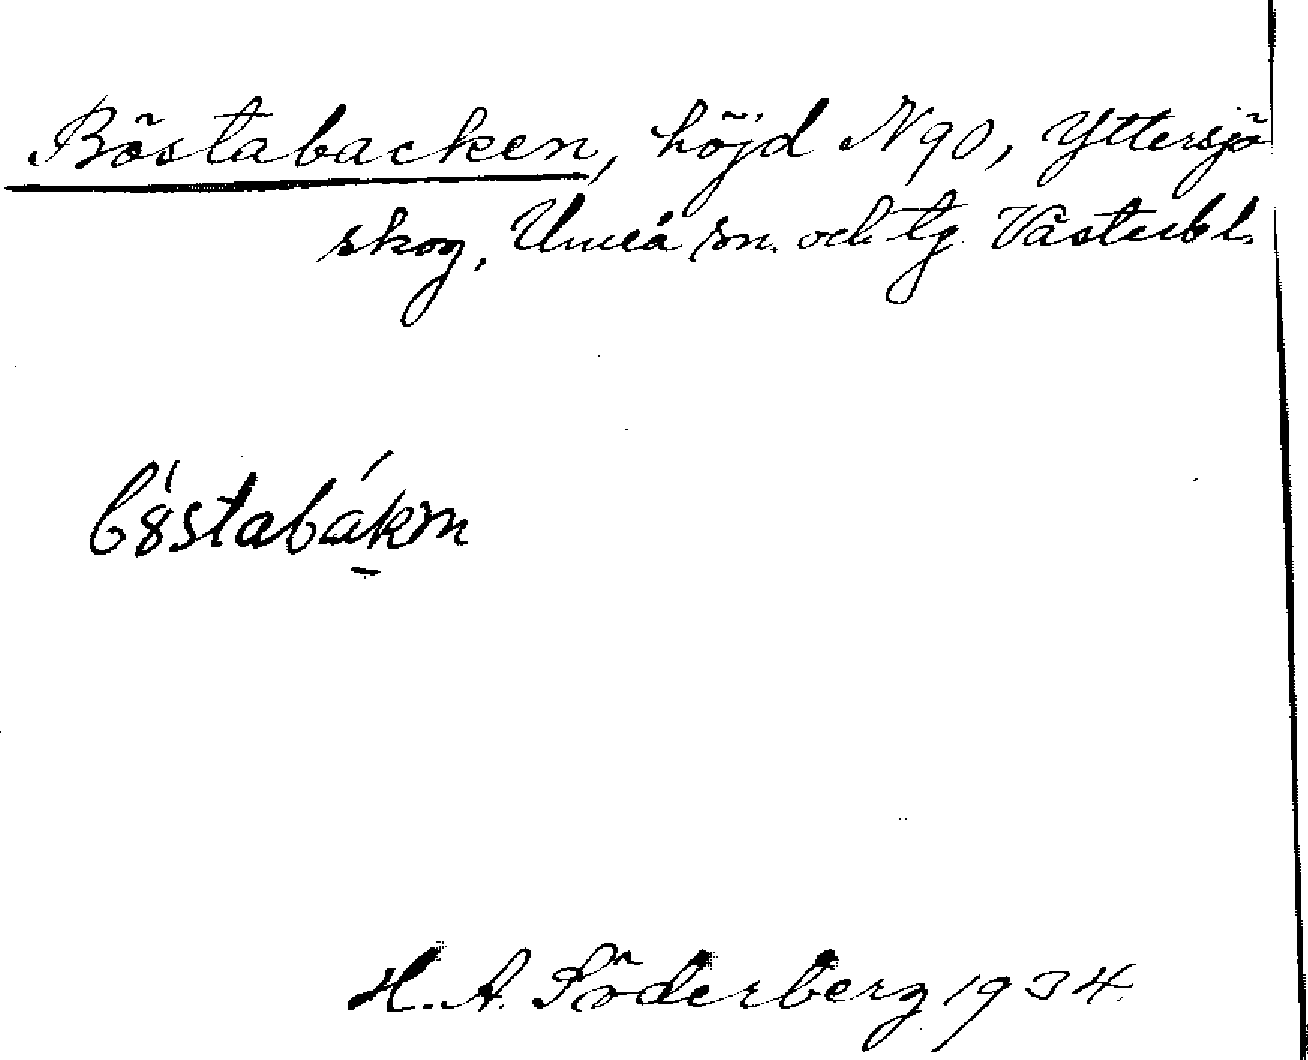 Böstabacken, höjd N 90, Yttersjö
skog, Umeå sn. och tg. Västerbl.
b8́stabákm̲
H. A. Söderberg 1934.